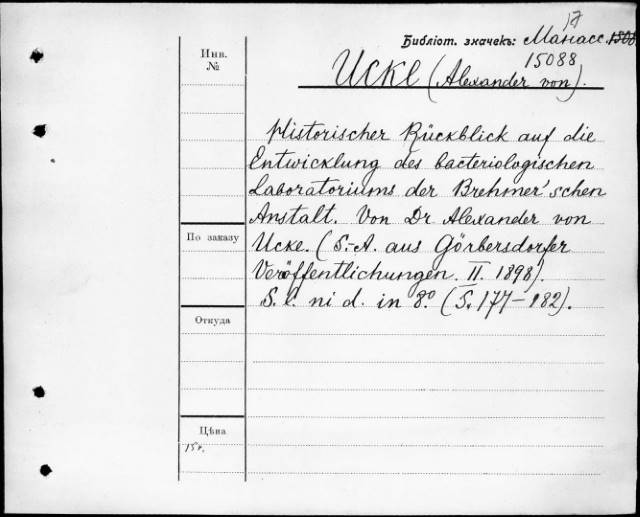 17
Библіот. значекъ: Манасс. 1508
15088
Инв.
№
Ucke (Alexander von).
Historischer Rückblick auf die
Entwicklung des bacteriologischen
Laboratoriums der Brehmer'schen
Anstalt. Von Dr Alexander von
По заказу
Ucke. (S.-A. aus Görbersdorfer
Veröffentlichungen. II. 1898).
S. l. ni d. in 8º. (S. 177-182).
Откуда
Цѣна
15к.